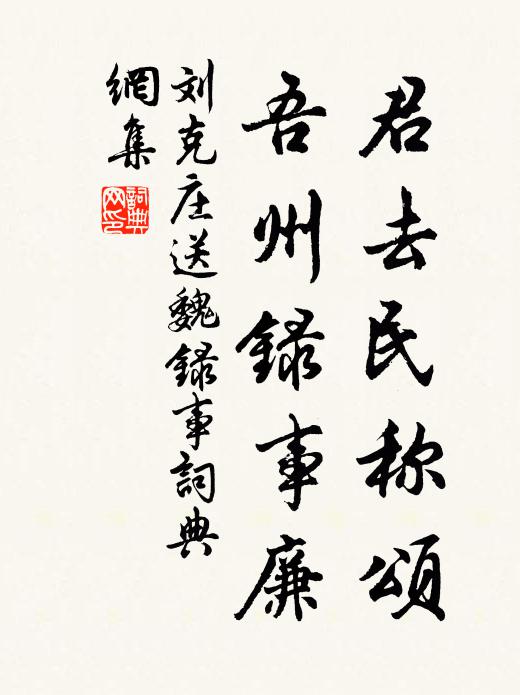 君去民称頌
吾州録事廉
刘克庄送魏録事詞典
網集
詞典網印